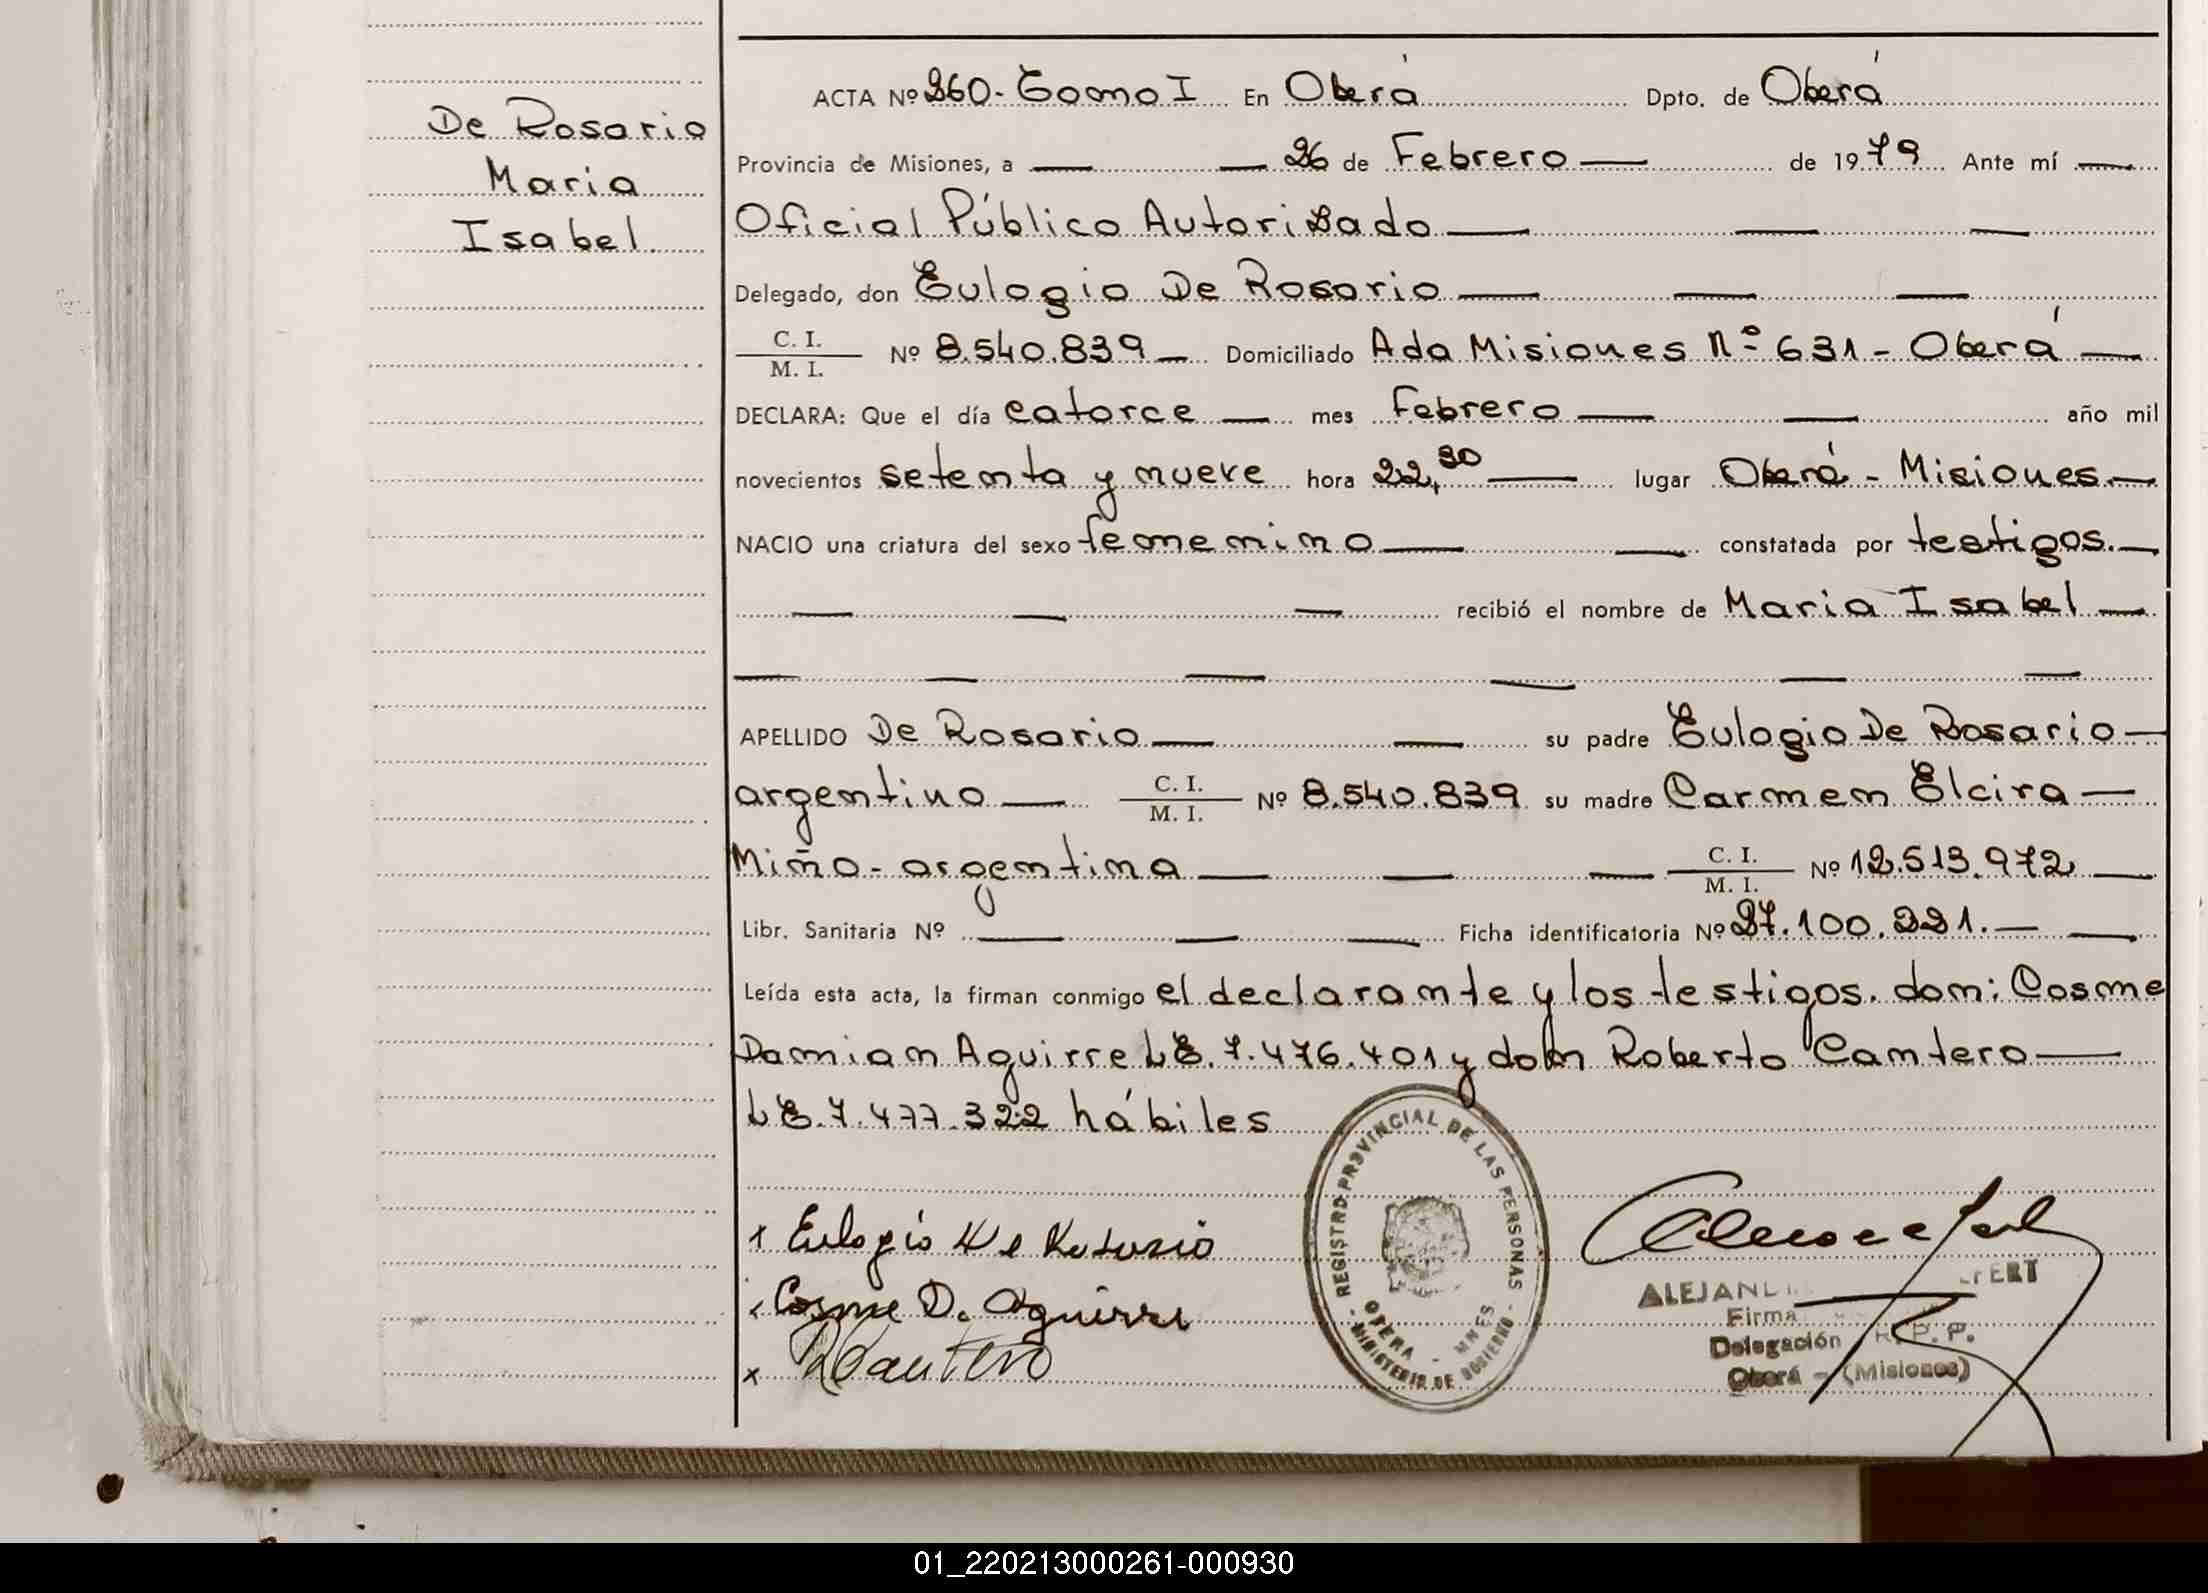 De Rosario
Maria
Isabel.
ACTA Nº 260 - Tomo I En Oberá Dpto. de Oberá
Provincia de Misiones, a — — 26 de Febrero — de 1979 Ante mí —
Oficial Público Autorizado — — —
Delegado, don Eulogio De Rosario — — —
C. I.
M. I. Nº 8.540.839 — Domiciliado Ada Misiones Nº 631 - Oberá —
DECLARA: Que el día catorce — mes Febrero — — año mil
novecientos setenta y nueve hora 22,30 — lugar Oberá - Misiones —
NACIO una criatura del sexo femenino — — constatada por testigos. —
— — — recibió el nombre de Maria Isabel —
— — — — — —
APELLIDO De Rosario — — su padre Eulogio De Rosario —
argentino — C. I. M. I. Nº 8.540.839 su madre Carmen Elcira —
Miño - argentina — — — C. I. M. I. Nº 12.513.972 —
Libr. Sanitaria Nº — — — Ficha identificatoria Nº 27.100.221. — —
Leída esta acta, la firman conmigo el declarante y los testigos. don: Cosme
Damian Aguirre LE. 7.476.401 y don Roberto Cantero —
LE. 7.477.322 hábiles
x Eulogio De Rosario
x Cosme D. Aguirre
x RCantero
REGISTRO PROVINCIAL DE LAS PERSONAS
OBERA - MNES.
- MINISTERIO DE GOBIERNO -
Firma
Delegación R. P. P.
Oberá - (Misiones)
01_220213000261-000930